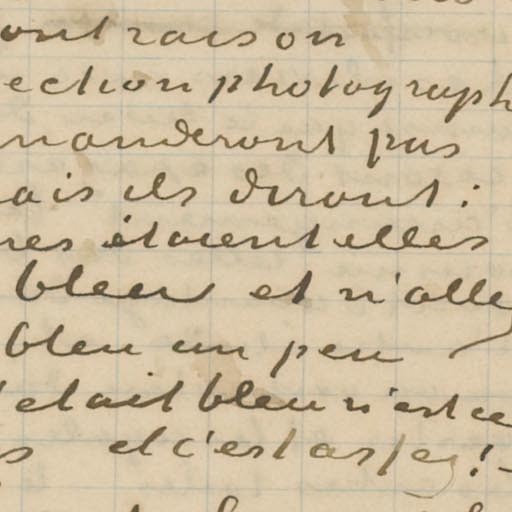 ont raison
ection photograph
manderont pas
ais ils diront :
res étaient elles
bleu et n'alle
bleu un peu
'etait bleu n'est ce
s et c'est assez !